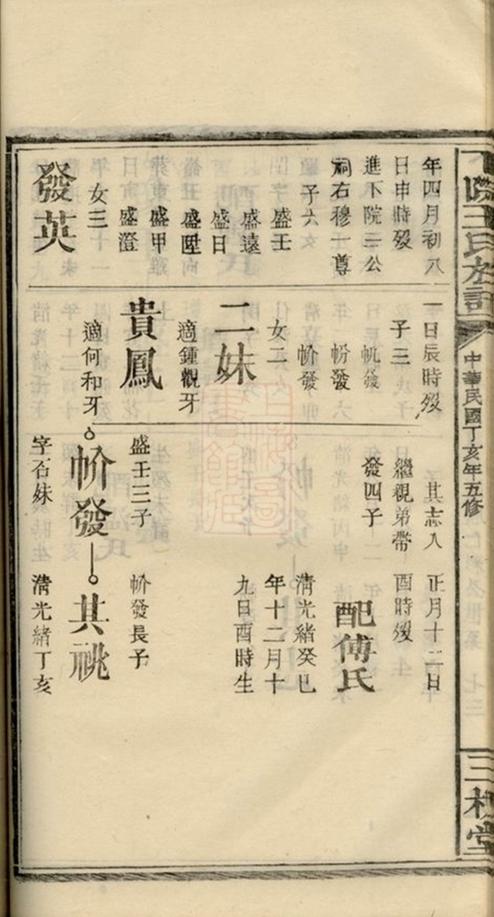 氏
中華民國丁亥年五修
三
堂
年四月初八
日申時歿
進下院三公
祠右穆一尊
子六
盛壬
盛遠
盛日
盛陞
盛甲
盛澄
女三
發英
一日辰時歿
子三
帆發
帉發
發
女二
二妹
適鍾觀牙
貴鳳
適何和牙
其志入
繼親弟帶
發四子
盛壬三子
發
字石妹
正月十二日
酉時歿
配傅氏
清光緒癸巳
年十二月十
九日酉時生
發長子
其祧
清光緒丁亥